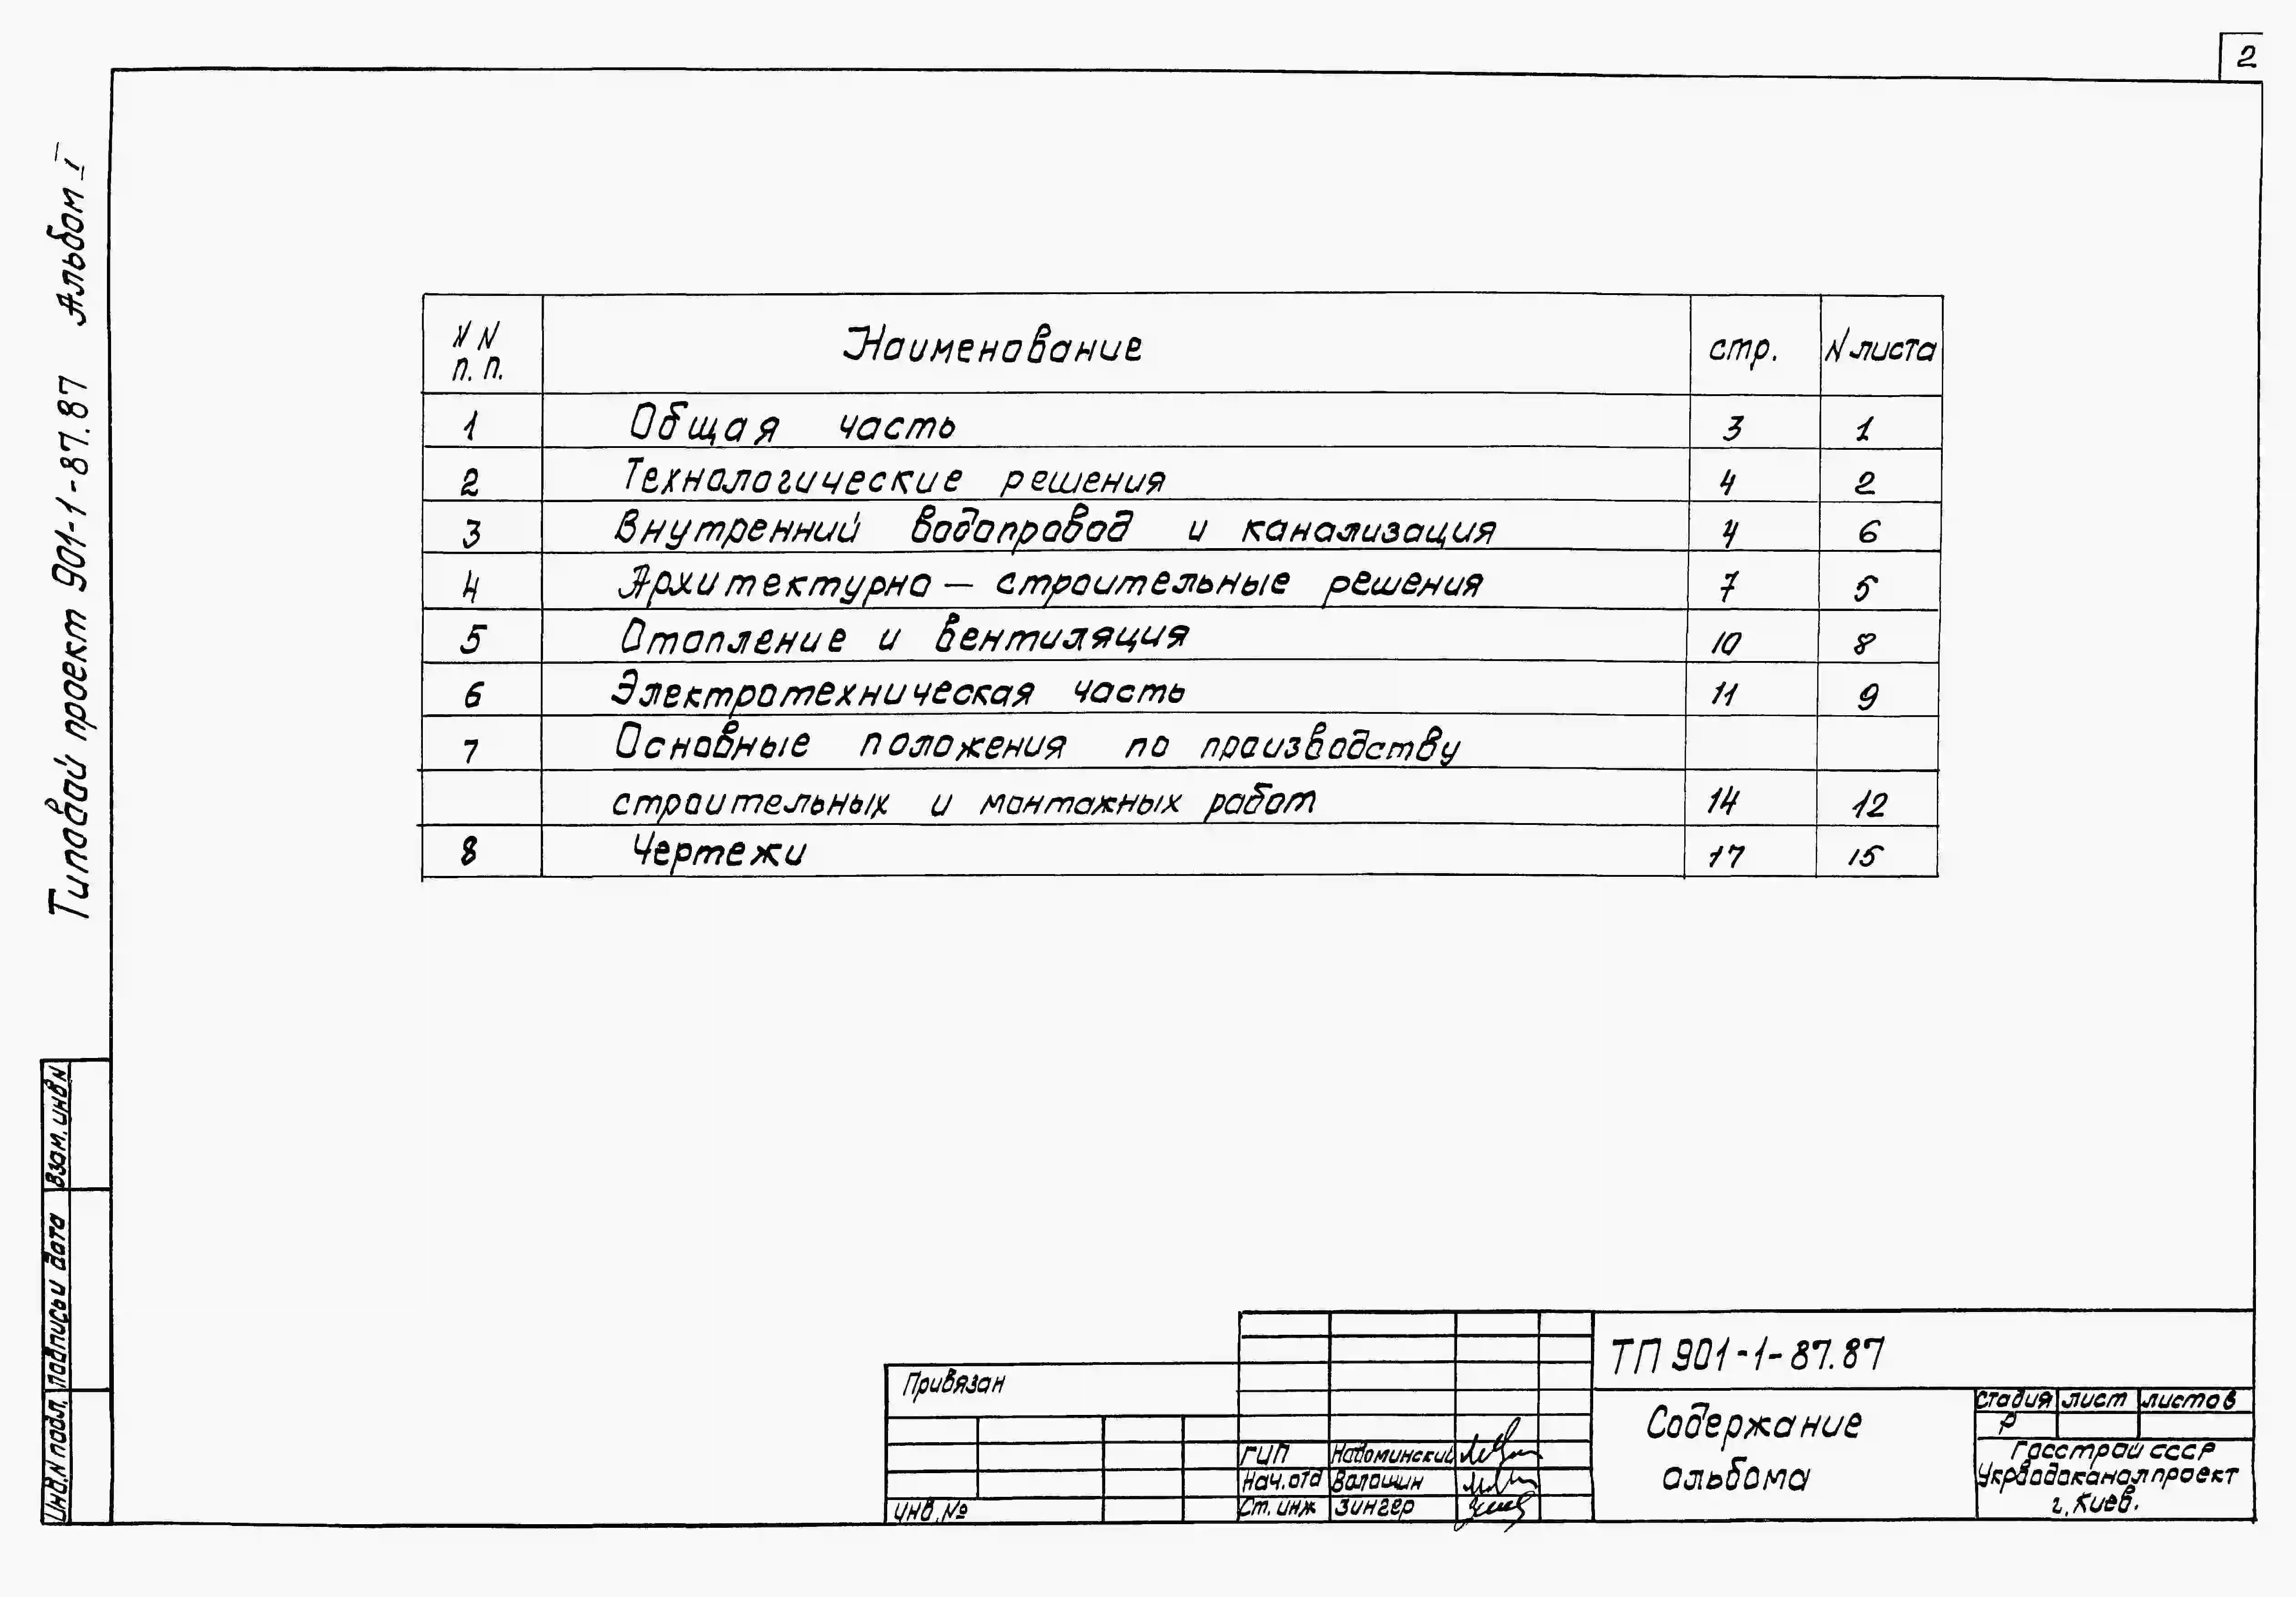 2
Типовой проект 901-1-87.87 Альбом I
NN п.п. Наименование стр. N листа
1 Общая часть 3 1
2 Технологические решения 4 2
3 Внутренний водопровод и канализация 4 6
4 Архитектурно – строительные решения 7 5
5 Отопление и вентиляция 10 8
6 Электротехническая часть 11 9
7 Основные положения по производству
строительных и монтажных работ 14 12
8 Чертежи 17 15
Взам. инв N
Подпись и дата
Инв. N подл.
Привязан
Инв. №
ГИП Надоминский
Нач. отд Волошин
Ст. инж Зингер
ТП 901-1-87.87
Содержание
альбома
Стадия Лист Листов
Р
Госстрой СССР
Укрводоканалпроект
г. Киев.